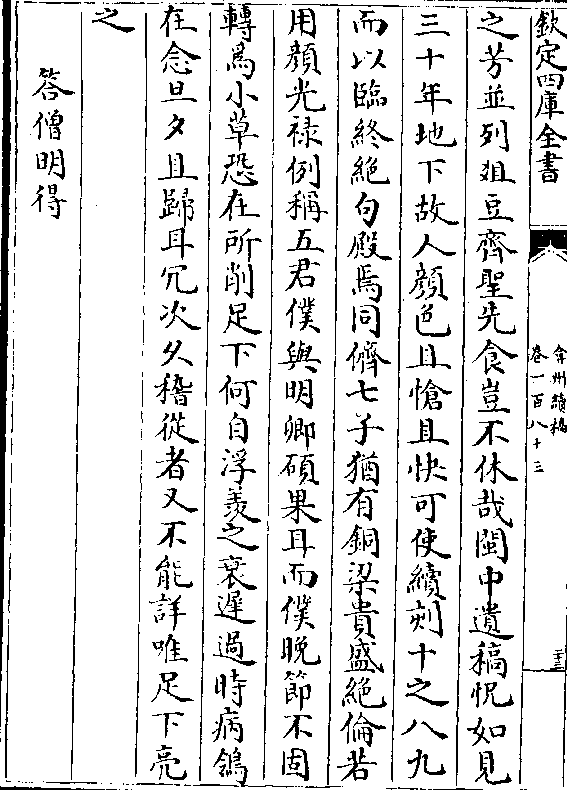 欽定四庫全書
弇州續稿
卷一百八十三
三
之芳並列俎豆齊聖先食豈不休哉閩中遺稿怳如見
三十年地下故人顏色且愴且快可使續刻十之八九
而以臨終絶句殿焉同儕七子猶有銅梁貴盛絶倫若
用顏光禄例稱五君僕與明卿碩果耳而僕晚節不固
轉為小草恐在所削足下何自浮羙之衰遲過時病鷁
在念旦夕且歸耳冗次久稽從者又不能詳唯足下亮
之
答僧明得